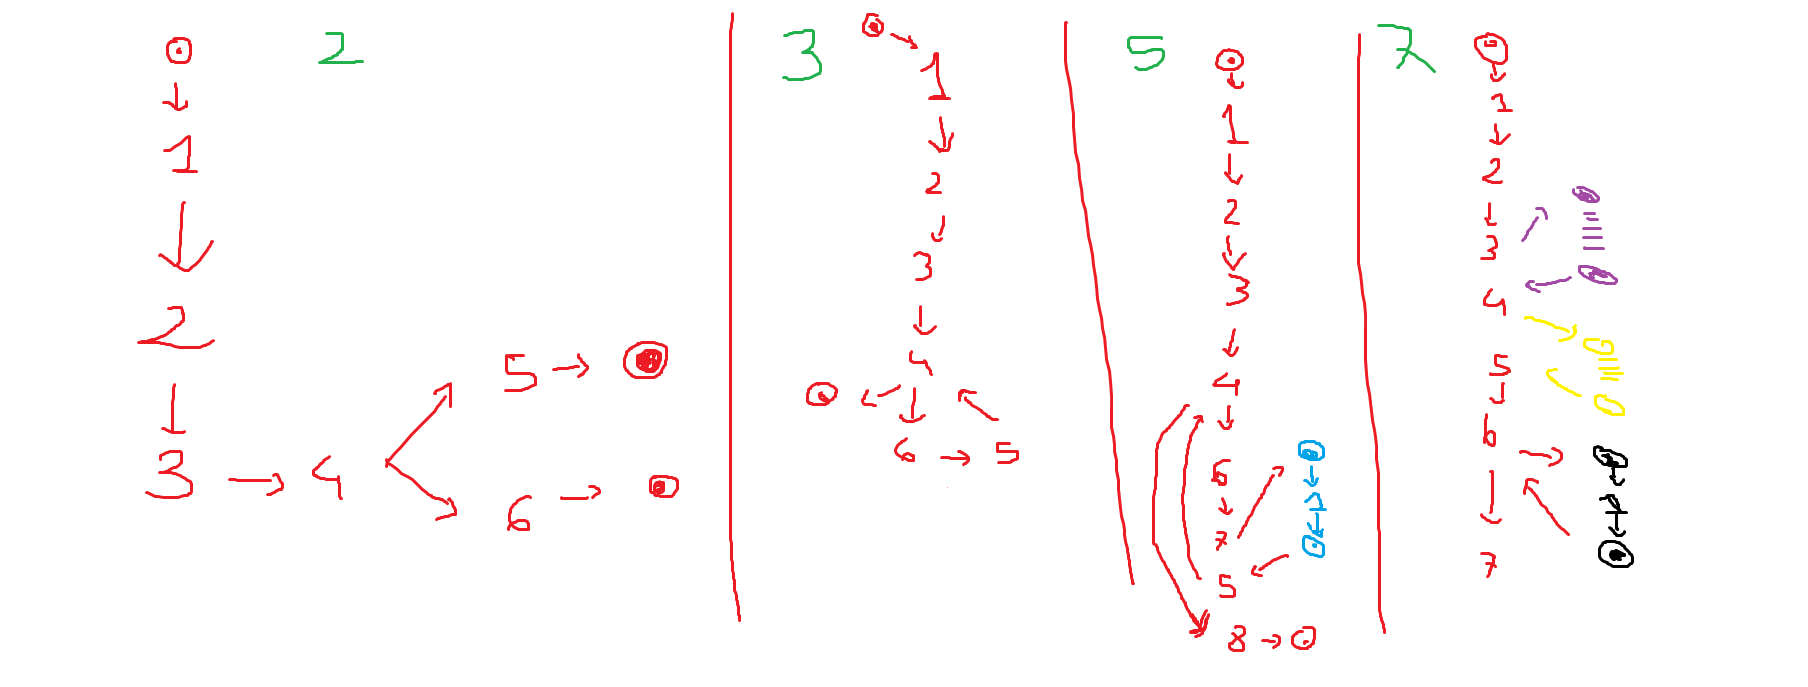 2
1
2
3 4
5
6
3
1
2
3
4
6 5
5
1
2
3
4
6
7
5
8
1
7
1
2
3
4
5
6
7